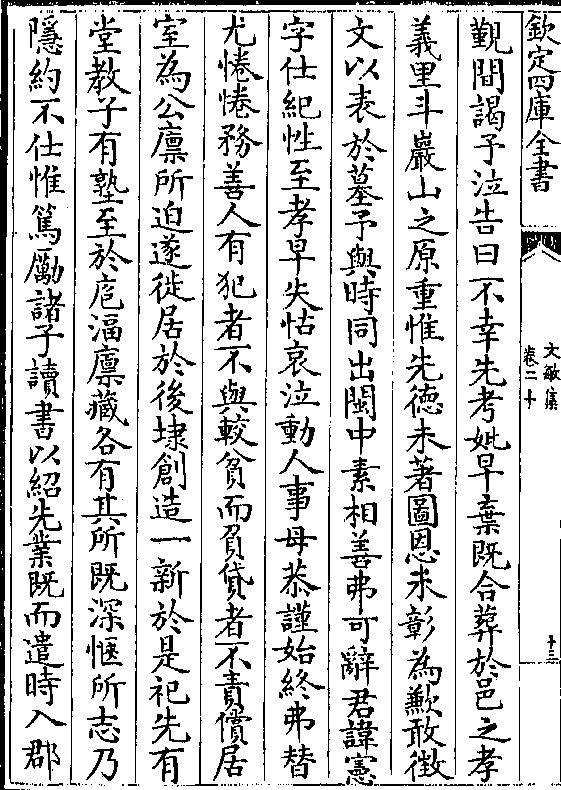 欽定四庫全書
文敏集
卷二十
十三
覲間謁予泣告曰不幸先考妣早棄既合葬於邑之孝
義里斗巖山之原重惟先德未著圖恩未彰為歉敢徴
文以表於墓予與時同出閩中素相善弗可辭君諱憲
字仕紀性至孝早失怙哀泣動人事母恭謹始終弗替
尤惓惓務善人有犯者不與較貧而負貸者不責償居
室為公廪所迫遂徙居於後埭創造一新於是祀先有
堂教子有塾至於庖湢廪藏各有其所既深愜所志乃
隱約不仕惟篤勵諸子讀書以紹先業既而遣時入郡